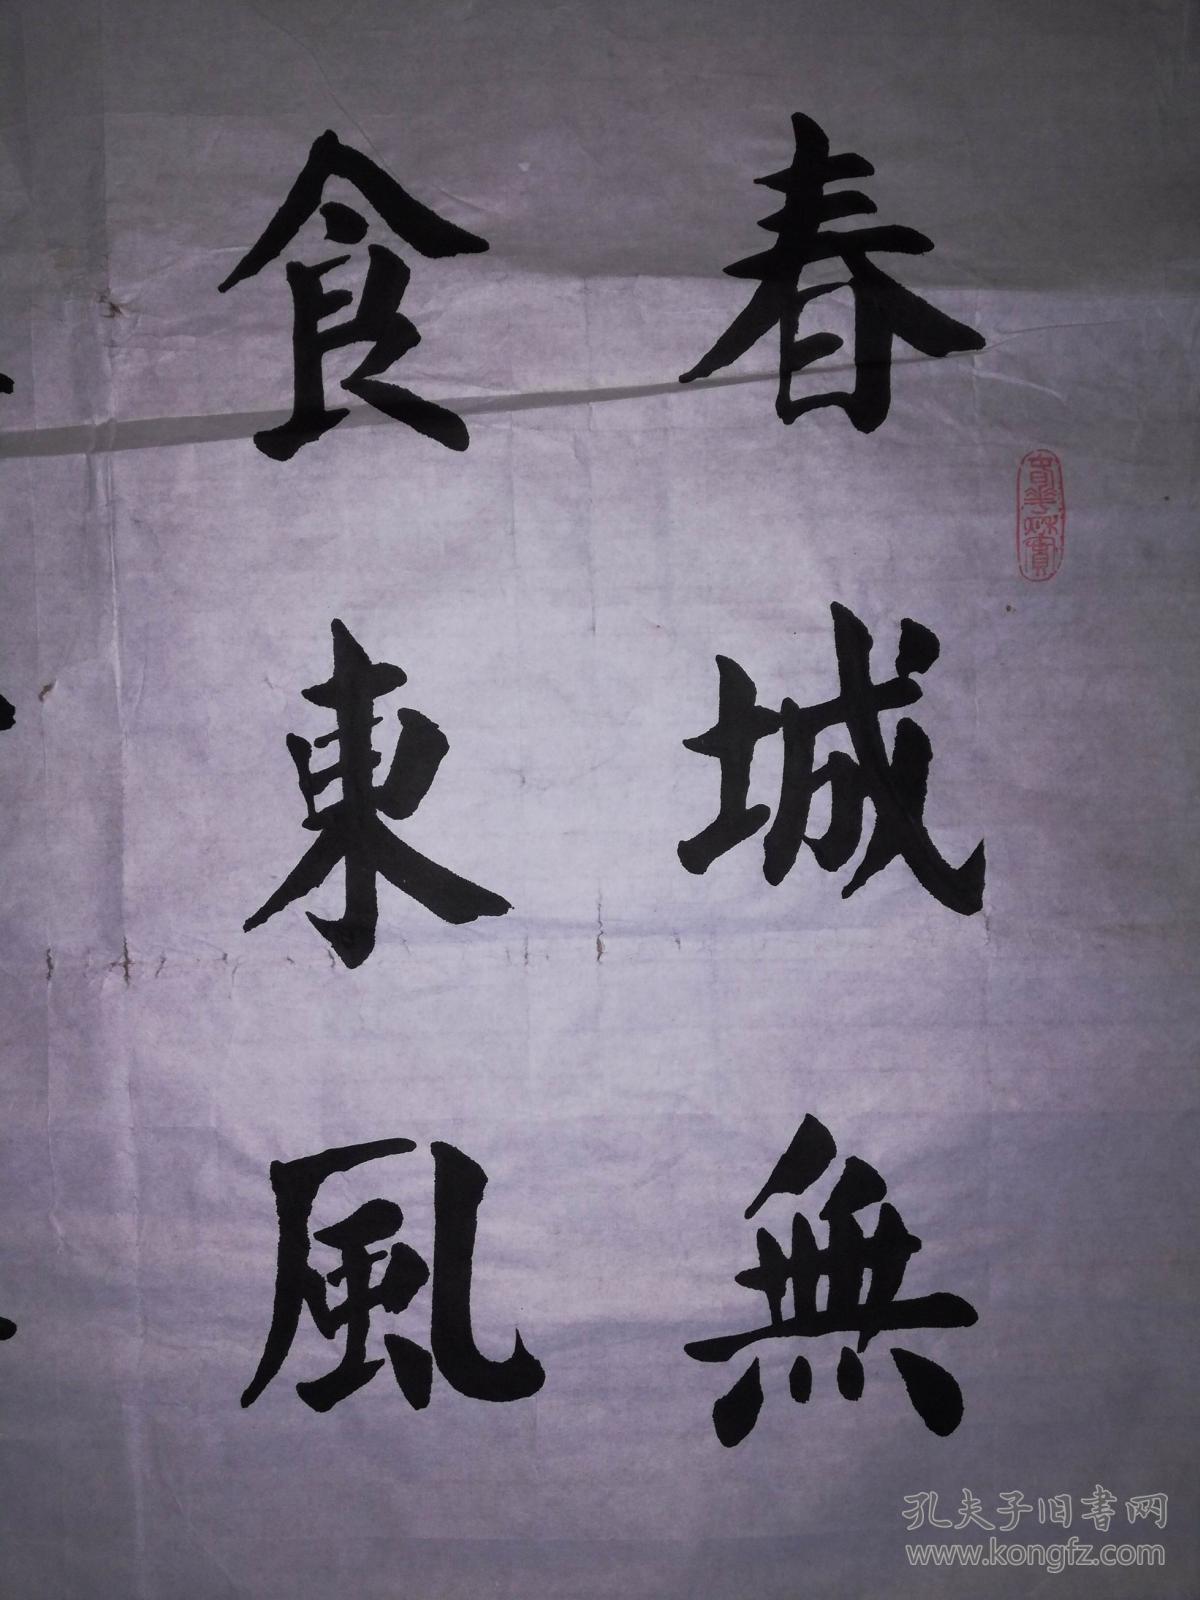 春城無
食東風
春華秋實
孔夫子旧书网
www.kongfz.com